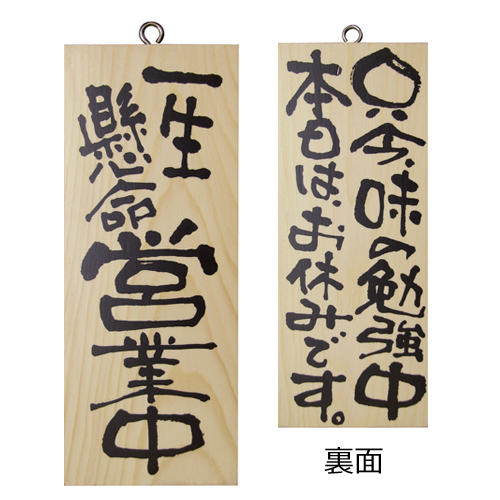 一生
懸命
営業中
只今、味の勉強中
本日は、お休みです。
裏面